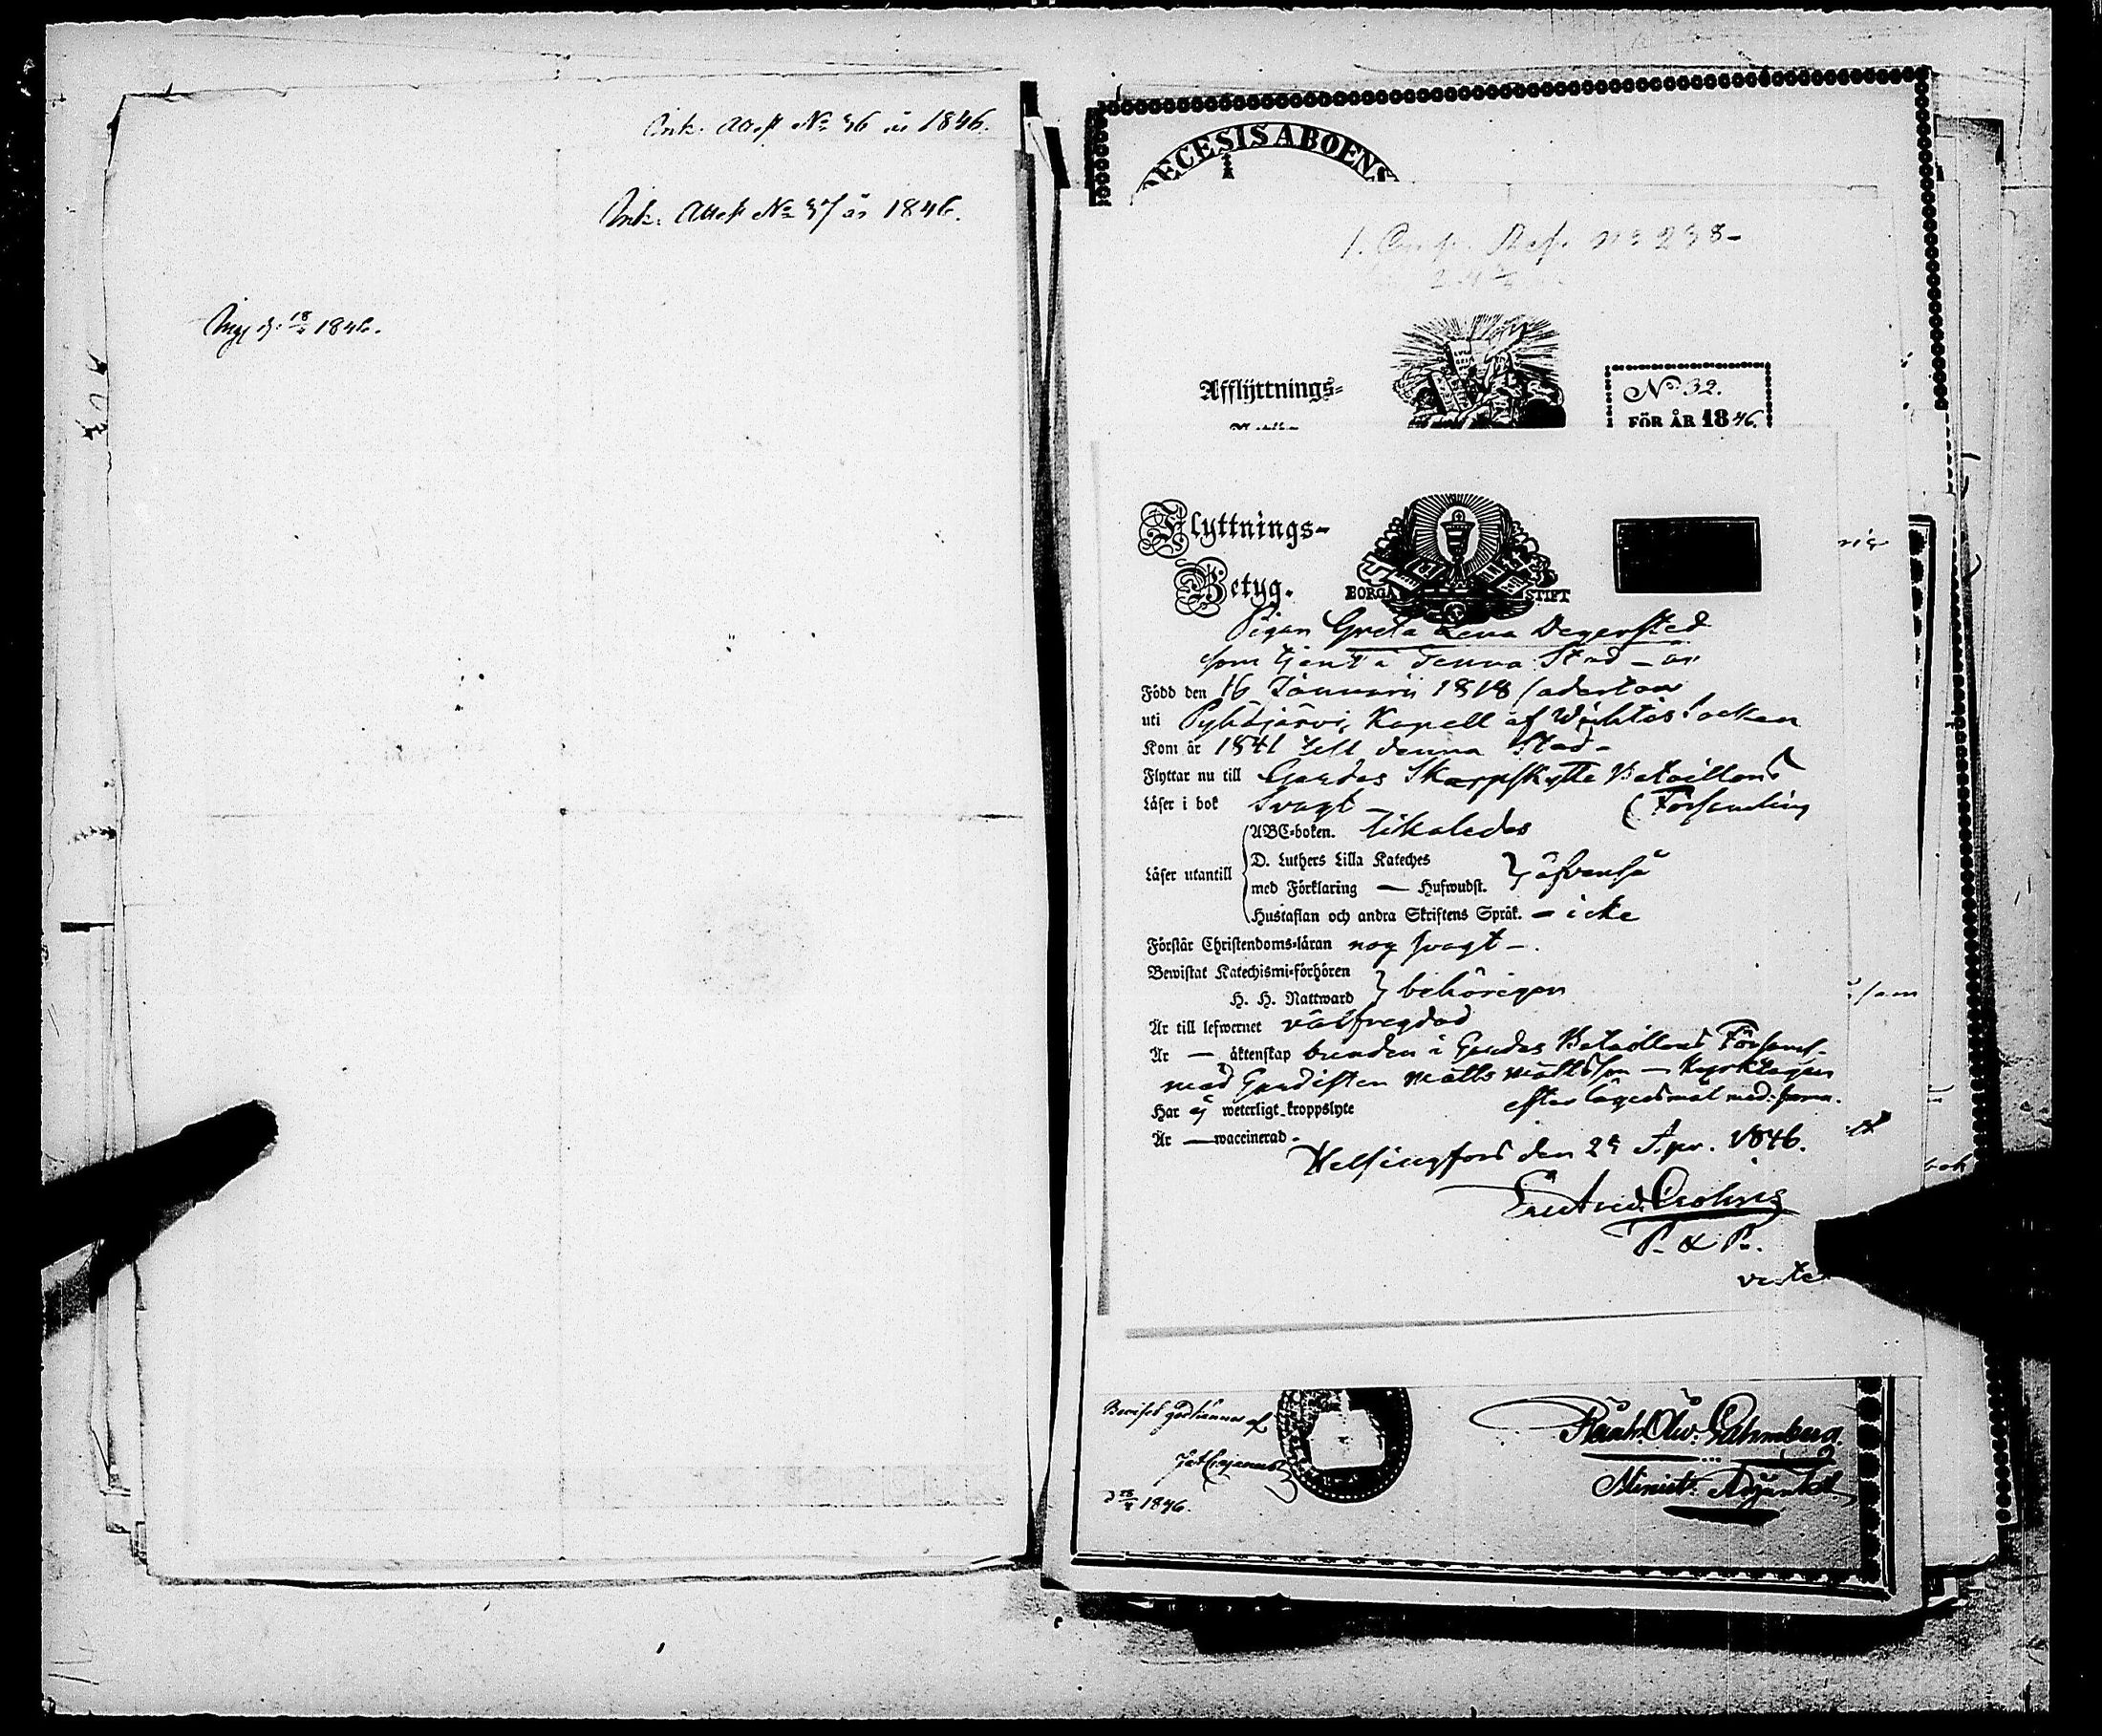 Ink. Attest No 36 år 1846.
Ink. Attest No 37 år 1846.
1846.
DECESIS ABOENS
No 238-
Afflyttnings=
No 32.
FÖR ÅR 1846.
Flyttnings=
Betyg.
BORGÅ STIFT
Pigan Greta Lena Degersted
som tjent i denna Stad – är
Född den 16 Januarii 1818 (aderton
uti Pyhäjärvi, Kapell af Wichtis Socken
Kom år 1841 till denna Stad –
Flyttar nu till Gardes Skarpskytte Bataillons
(Församling
Läser i bok Svagt –
Läser utantill
ABC=boken. likaledes
D. Luthers Lilla Kateches
med Förklaring — Hufwudst. } äfvenså
Hustaflan och andra Skriftens Språk. – icke
Förstår Christendoms=läran nog svagt –.
Bewistat Katechismi=förhören
H. H. Nattward } behörigen
Är till lefwernet välfregdad
Är — äktenskap bunden i Gardes Bataillons Församl.
med Gardisten Matts Mattsson — Kyrktagen
efter lägersmål med
Har ej weterligt kroppslyte
Är — waccinerad –
Helsingfors den Apr. 1846.
Crohns
P. & P.
Beviset godkännes af
1846.
Minist. Adjunkt.